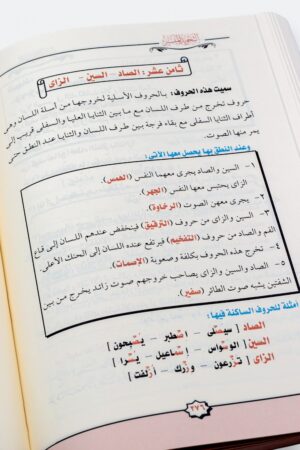 التجويد المصور
ثامن عشر: الصاد - السين - الزاى
سميت هذه الحروف: بالحروف الأسلية لخروجها من أسلة اللسان وهى
حروف تخرج من طرف اللسان مع ما بين الثنايا العليا والسفلى قريب إلى
أطراف الثنايا السفلى مع بقاء فرجة بين طرف اللسان والثنايا عند النطق حتى
يجر منها الصوت.
وعند النطق بها يحصل معها الآتى:
١- السين والصاد يجرى معهما النفس (الهمس).
الزاى يحتبس معها النفس (الجهر).
٢- يجرى معهن الصوت (الرخاوة).
٣- السين والزاى من حروف (الترقيق) فينخفض عندهم اللسان إلى قاع
الفم والصاد من حروف (التفخيم) فيرتفع عنده اللسان إلى الحنك الأعلى.
٤- تخرج هذه الحروف بكلفة وصعوبة (الإصمات).
٥- الصاد والسين والزاى يصاحب خروجهم صوت زائد يخرج من بين
الشفتين يشبه صوت الطائر (صفير).
أمثلة للحروف الساكنة فيها:
الصاد [ سيصلى - اصطبر - يصبحون ]
السين [ الوسواس - إسماعيل - يسرا ]
الزاى [ تزرعون - وزرك - أزلفت ]
٢٧٦